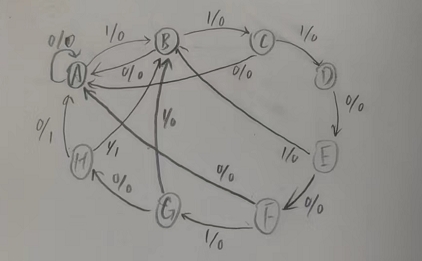 0/0
1/0
B
1/0
C
1/0
A
0/0
0/0
D
0/0
0/1
1/1
1/0
1/0
E
H
0/0
0/0
0/0
G
F
1/0